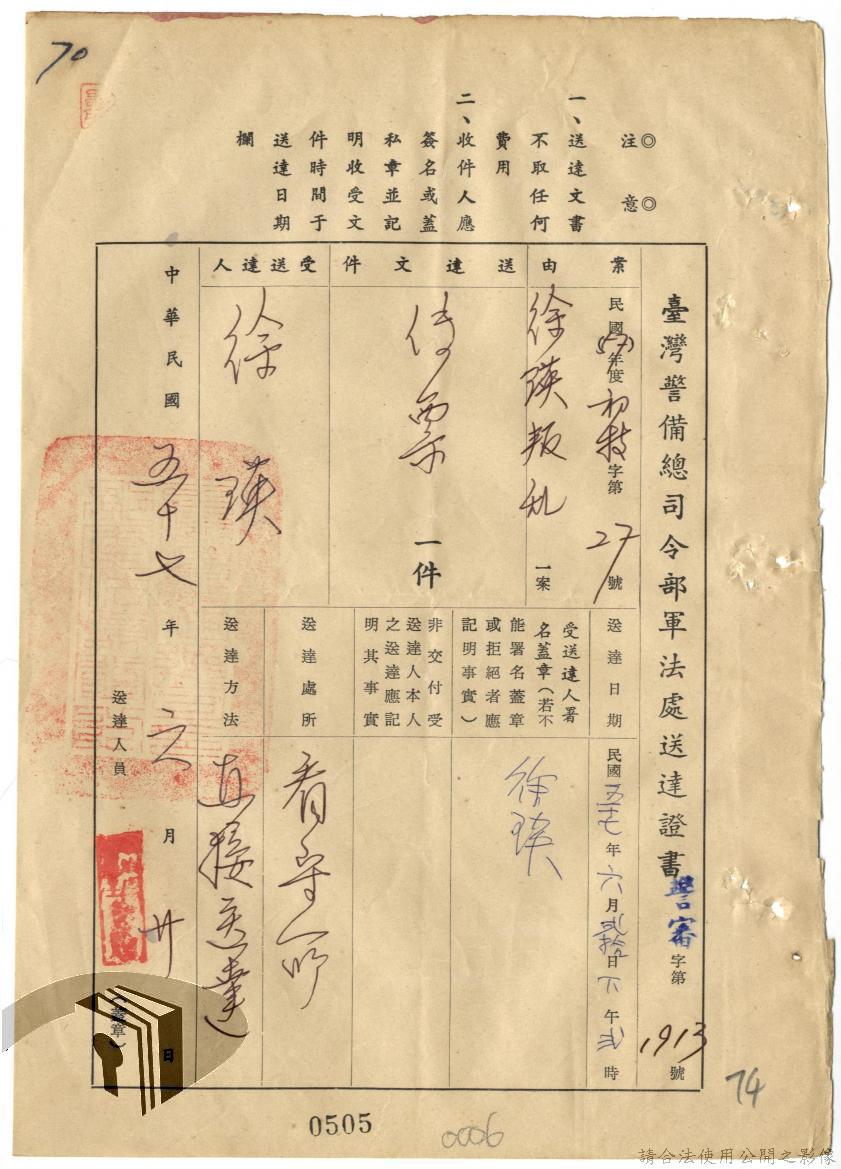 70
◎注意◎
一、送達文書
不取任何
費用
二、收件人應
簽名或蓋
私章並記
明收受文
件時間于
送達日期
欄
臺灣警備總司令部軍法處送達證書 警審字第1913號
案由
民國(57)年度初特字第27號
徐瑛叛乱一案
送達文件
傳票一件
受送達人
徐瑛
送達日期
民國五十七年六月貳拾日下午貳時
受送達人署
名蓋章(若不
能署名蓋章
或拒絕者應
記明事實)
徐瑛
非交付受
送達人本人
之送達應記
明其事實
送達處所
看守所
送達方法
直接送達
中華民國五十七年六月廿日
送達人員
(蓋章)
0505
0006
74
請合法使用公開之影像